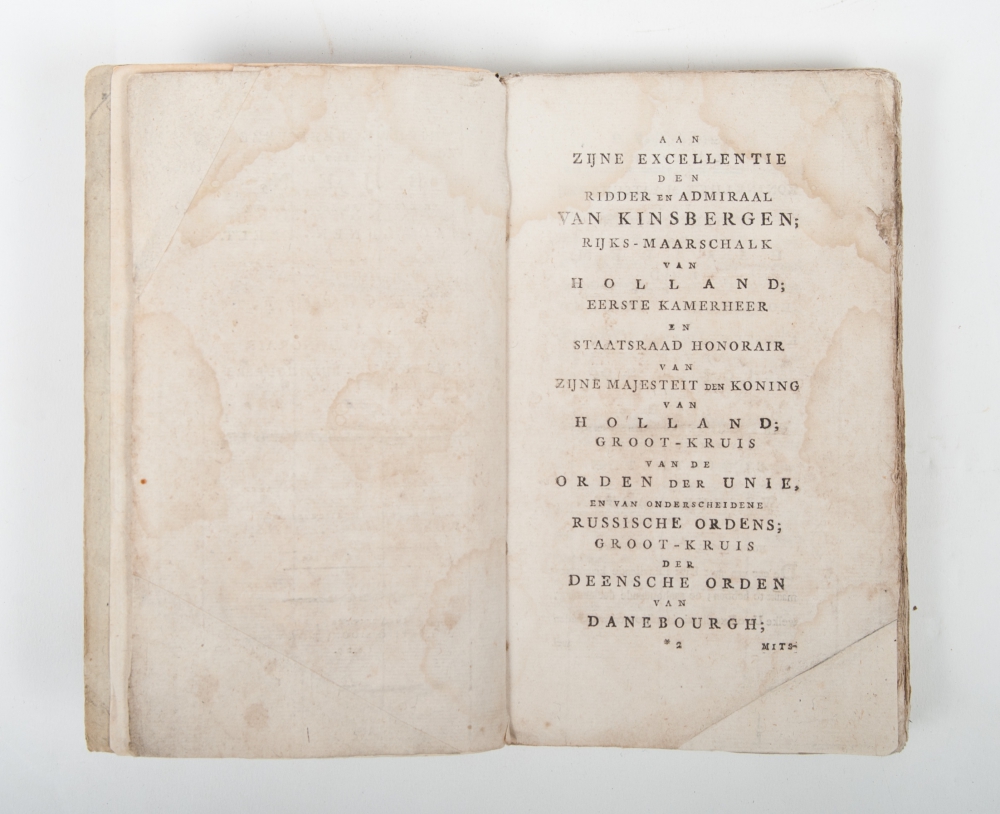 AAN
ZIJNE EXCELLENTIE
DEN
RIDDER EN ADMIRAAL
VAN KINSBERGEN;
RIJKS-MAARSCHALK
VAN
HOLLAND;
EERSTE KAMERHEER
EN
STAATSRAAD HONORAIR
VAN
ZIJNE MAJESTEIT DEN KONING
VAN
HOLLAND;
GROOT-KRUIS
VAN DE
ORDEN DER UNIE,
EN VAN ONDERSCHEIDENE
RUSSISCHE ORDENS;
GROOT-KRUIS
DER
DEENSCHE ORDEN
VAN
DANEBOURGH;
*2 MITS-